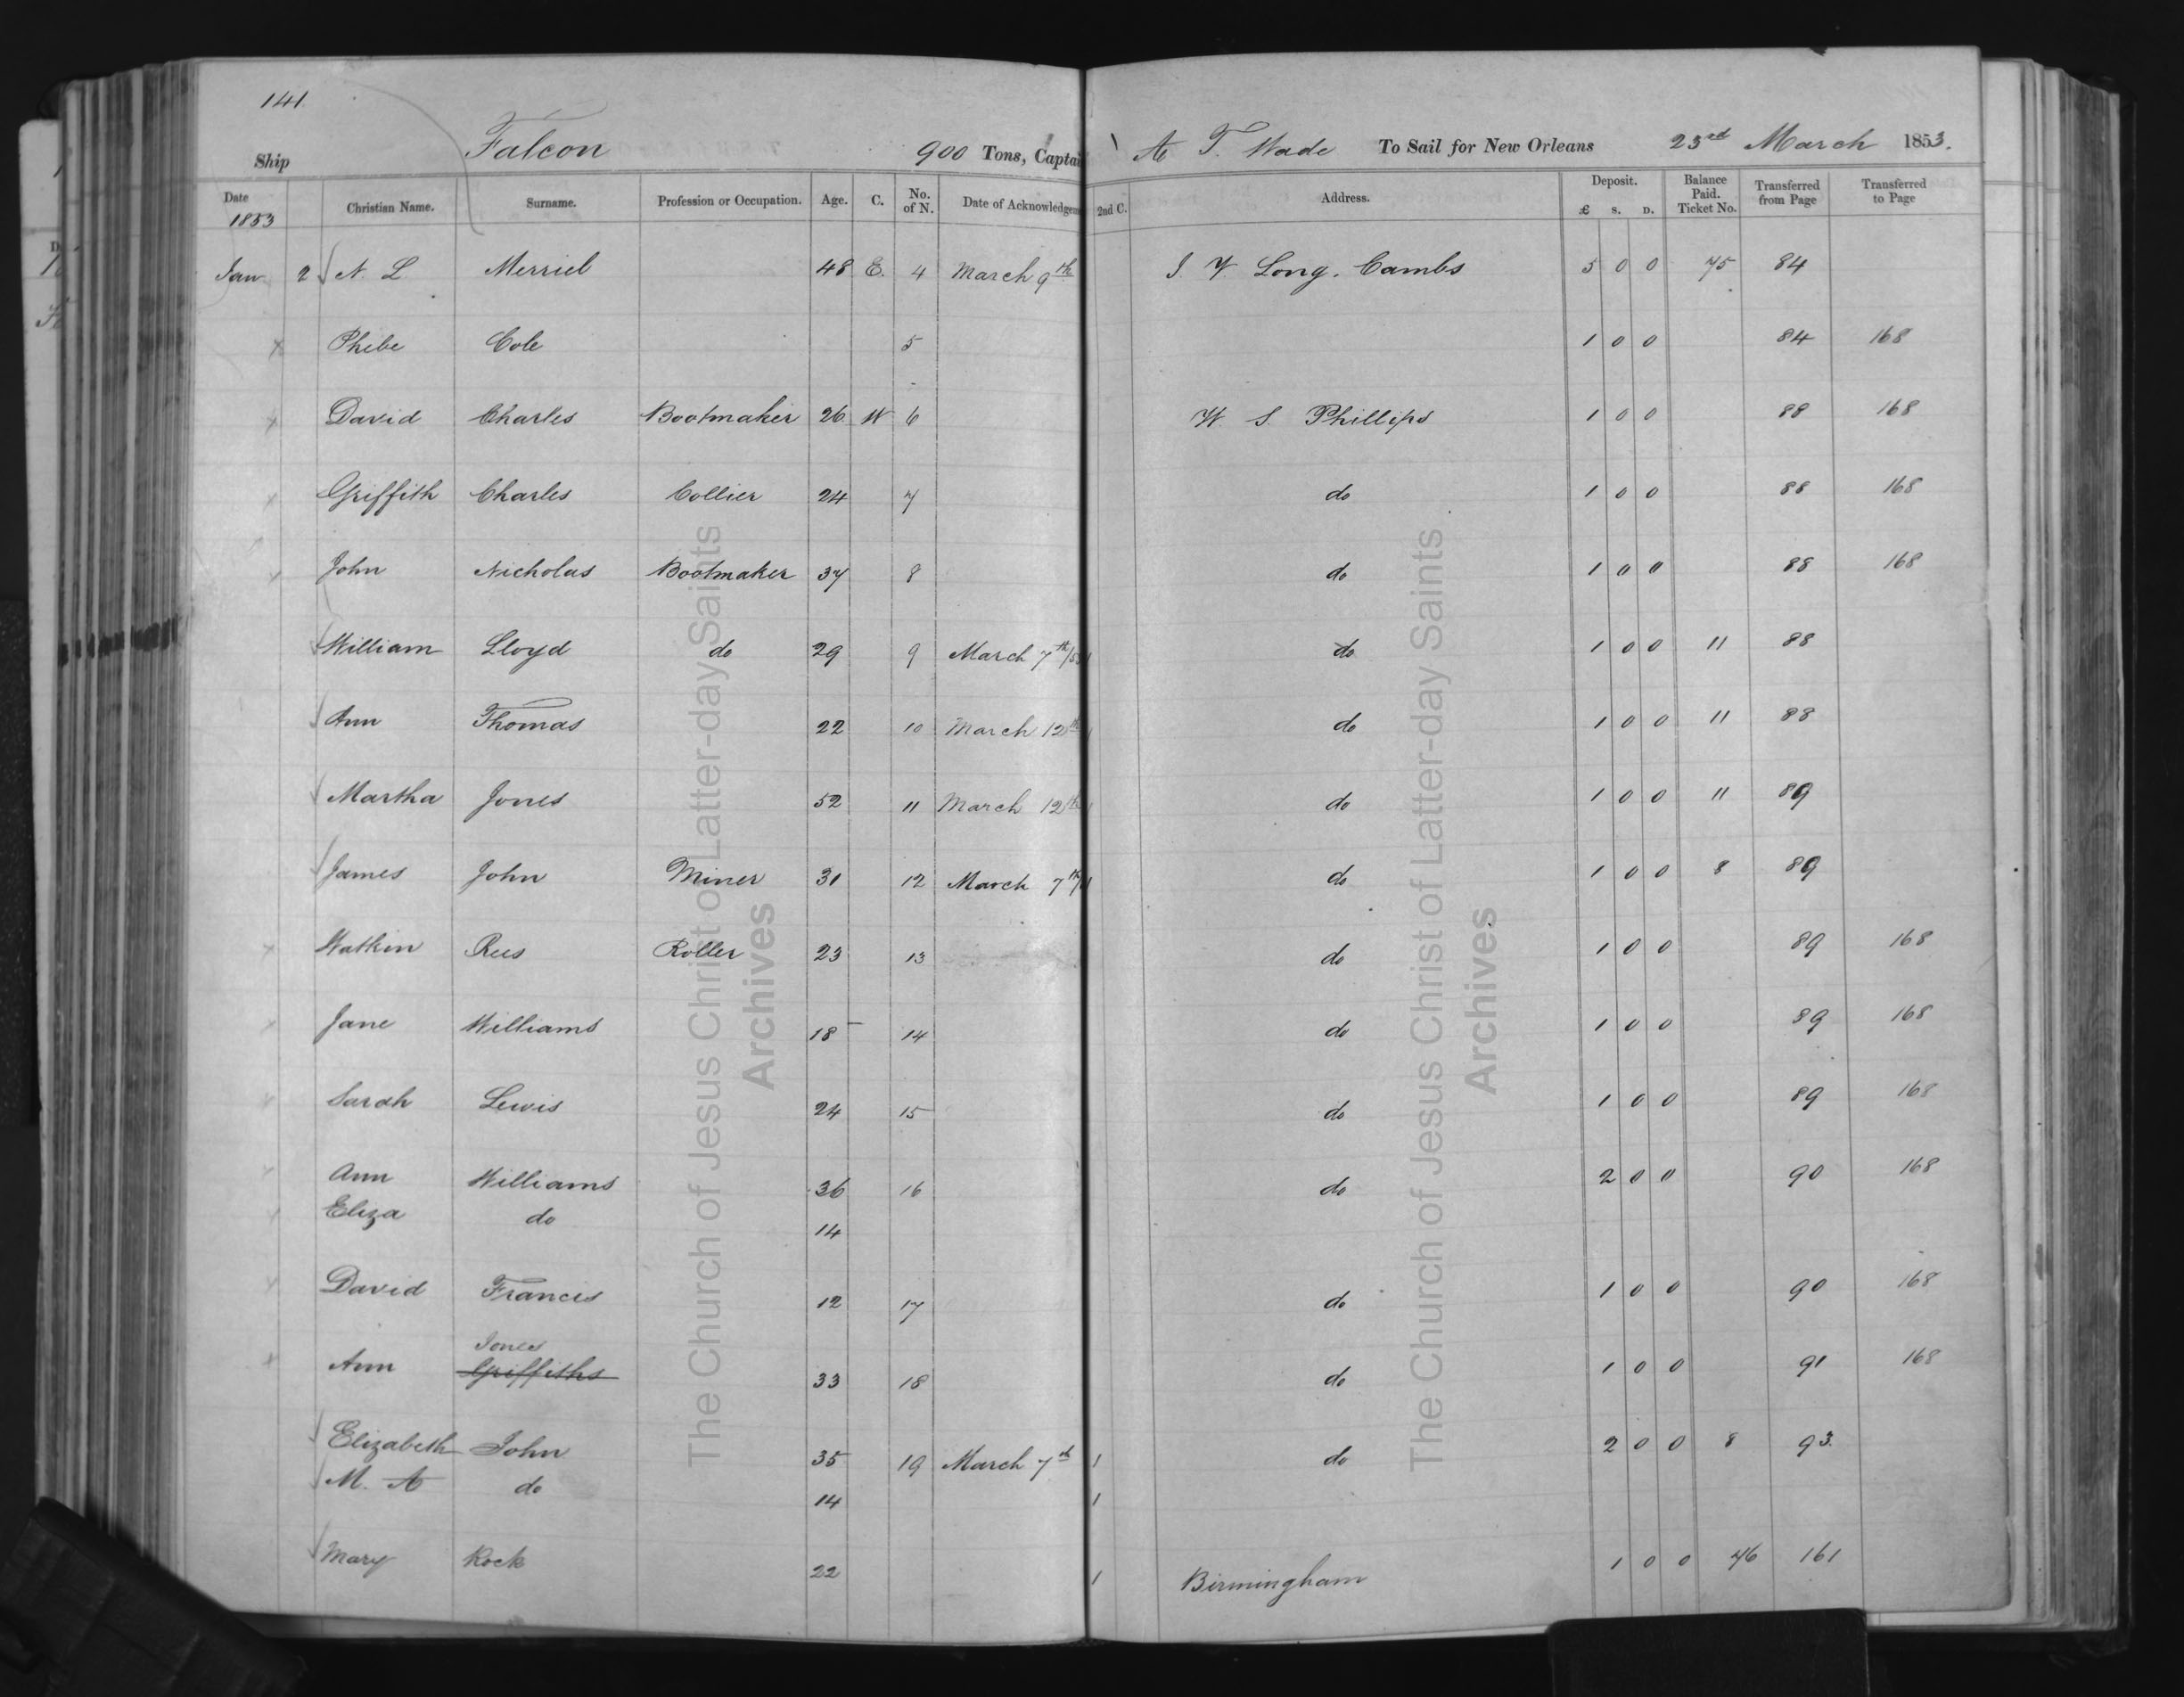 141
Ship Falcon 900 Tons, Captai A T. Wade To Sail for New Orleans 23rd March 1853.
Date 1853 Christian Name. Surname. Profession or Occupation. Age. C. No. of N. Date of Acknowledgem 2nd C. Address. Deposit. £ S. D. Balance Paid. Ticket No. Transferred from Page Transferred to Page
Jan 2 N. L Merriel 48 E. 4 March 9th J. V. Long. Cambs 5 0 0 75 84
Phebe Cole 5 1 0 0 84 168
David Charles Bootmaker 26 W 6 W. S Phillips 1 0 0 88 168
Griffith Charles Collier 24 7 do 1 0 0 88 168
John Nicholas Bootmaker 37 8 do 1 0 0 88 168
William Lloyd do 29 9 March 7th/53 do 1 0 0 11 88
Ann Thomas 22 10 March 12th 1 do 1 0 0 11 88
Martha Jones 52 11 March 12th 1 do 1 0 0 11 89
James John Miner 31 12 March 7th 1 do 1 0 0 8 89
Watkin Rees Roller 23 13 do 1 0 0 89 168
Jane Williams 18 14 do 1 0 0 89 168
Sarah Lewis 24 15 do 1 0 0 89 168
Ann Williams 36 16 do 2 0 0 90 168
Eliza do 14
David Francis 12 17 do 1 0 0 90 168
Jones
Ann Griffiths 33 18 do 1 0 0 91 168
Elizabeth John 35 19 March 7th 1 do 2 0 0 8 93
M. A do 14 1
Mary Rock 22 1 Birmingham 1 0 0 46 161
The Church of Jesus Christ of Latter-day Saints
Archives
The Church of Jesus Christ of Latter-day Saints
Archives